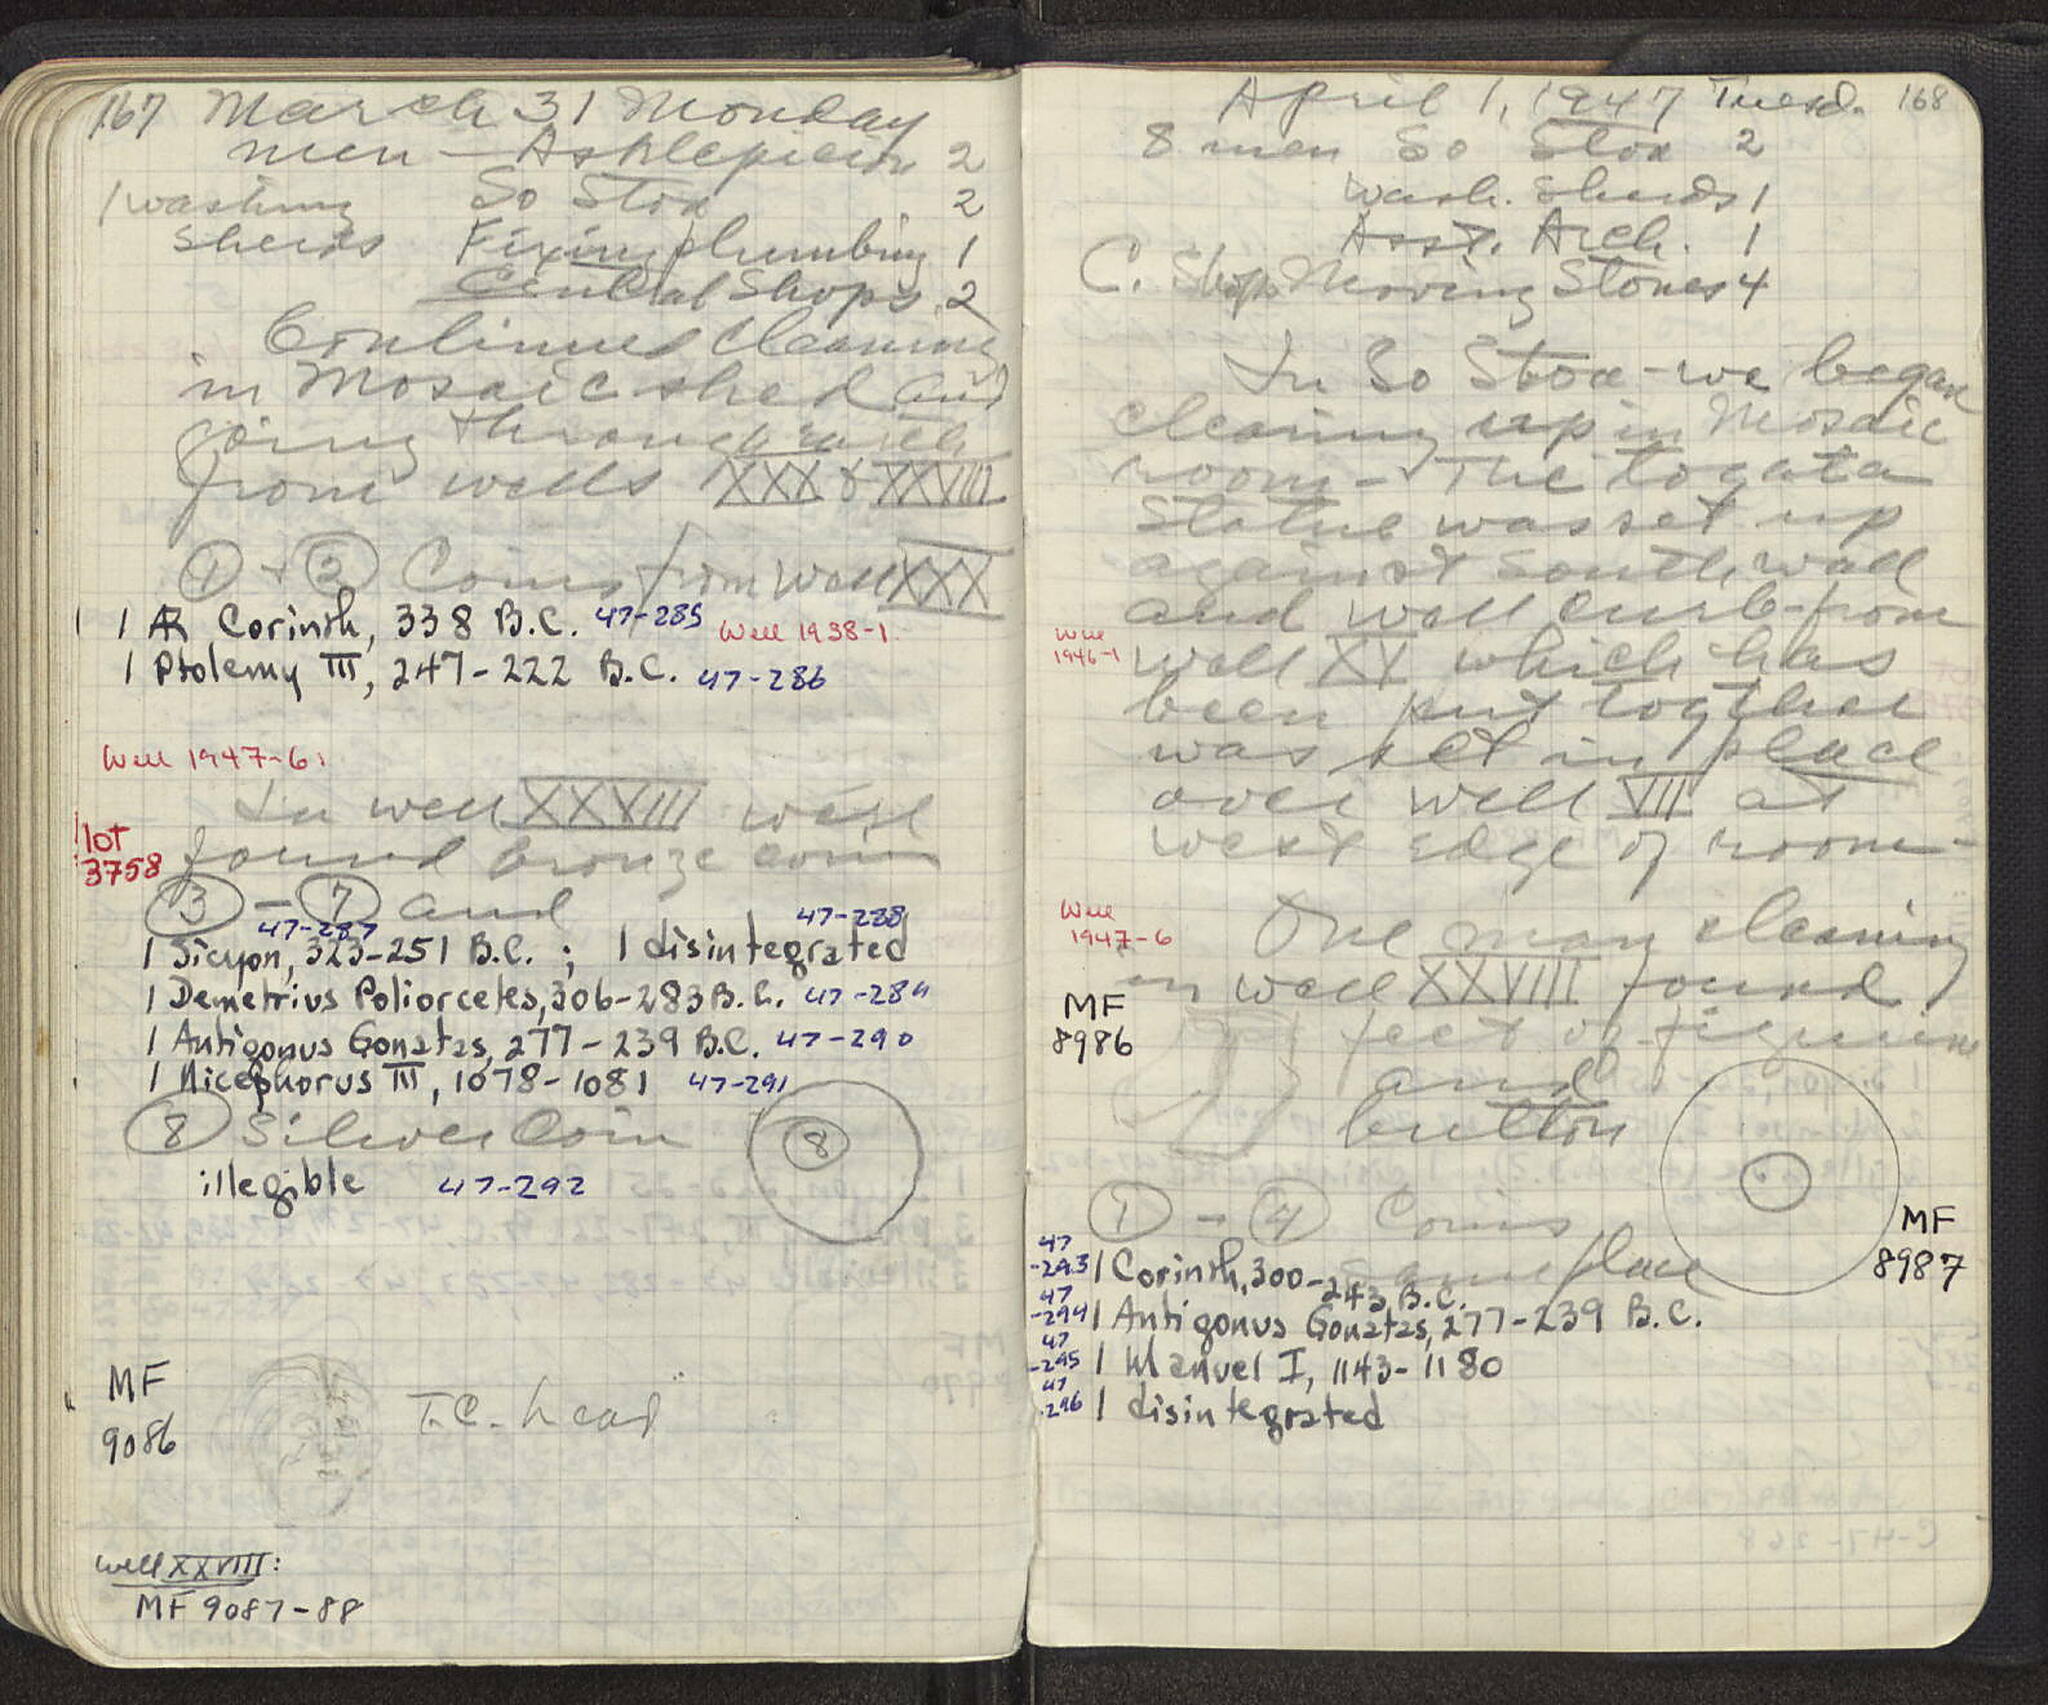 167 March 31 Monday
men — Asklepieion 2
1 washing So Stoa 2
sherds Fixing plumbing 1
Central Shops 2
Continued cleaning
in Mosaic shed and
going through earth
from wells XXX & XXVIII
① + ② Coins from Well XXX
1 AR Corinth, 338 B.C. 47-285 Well 1938-1.
1 Ptolemy III, 247-222 B.C. 47-286
Well 1947-6:
In well XXVIII were
lot
3758
found bronze coin
③ - ⑦ and
47-287 47-288
1 Sicyon, 323-251 B.C. ; 1 disintegrated
1 Demetrius Poliorcetes, 306-283 B.C. 47-289
1 Antigonus Gonatas, 277-239 B.C. 47-290
1 Nicephorus III, 1078-1081 47-291
⑧ Silver Coin ⑧
illegible 47-292
MF
9086
T.C. head
Well XXVIII:
MF 9087-88
April 1, 1947 Tuesd. 168
8 men So Stoa 2
Wash. Sherds 1
Asst. Arch. 1
C. Shops Moving Stones 4
In So Stoa - we began
cleaning up in Mosaic
room - The togata
statue was set up
against south wall
and well curb from
Well
1946-1
well XV which has
been put togther
was set in place
over well VII at
west edge of room -
Well
1947-6
One man cleaning
in well XXVIII found
MF
8986
feet of figurine
and
button
MF
8987
① - ④ Coins
same place
47
-293 1 Corinth, 300-243 B.C.
47
-294 1 Antigonus Gonatas, 277-239 B.C.
47
-295 1 Manuel I, 1143-1180
47
-296 1 disintegrated